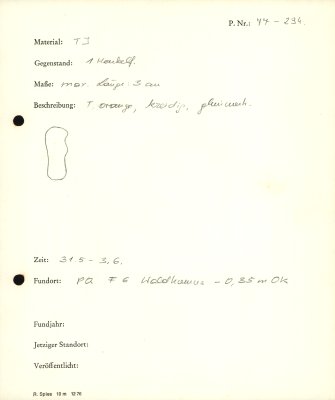 P. Nr.: 77 - 234.
Material: TI
Gegenstand: 1 Henkelf.
Maße: max. Länge: 3 cm
Beschreibung: T orange,
Zeit: 31.5 - 3.6.
Fundort: PQ F 6 - 0,35 m OK
Fundjahr:
Jetziger Standort:
Veröffentlicht:
R. Spies 10 m 12 76